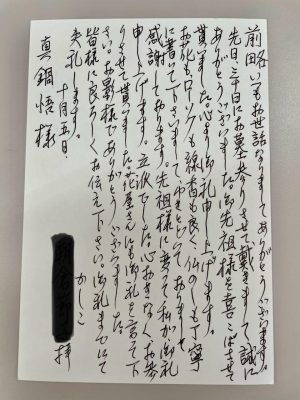 前略 いつもお世話なりましてありがとうございます。
先日、三十日にお墓参りさせて戴きまして誠に
ありがとうございました。御先祖様を喜こばさせて
貰いました。心より御礼申し上げます。
お花もローソクも線香も良く、仏のしも丁寧
に書いて下さいまして、ゆきとどいておりまして
感謝しております。先祖様に変って私が御礼
申し上げます。立派でした。心おきなくお参
りさせて貰いました。花屋さんにも御礼を言って下
さい。お蔭様でありがとうございました。
皆様に良ろしくお伝え下さい。御礼までにて
失礼します。 かしこ
十月五日 拝
真鍋悟様